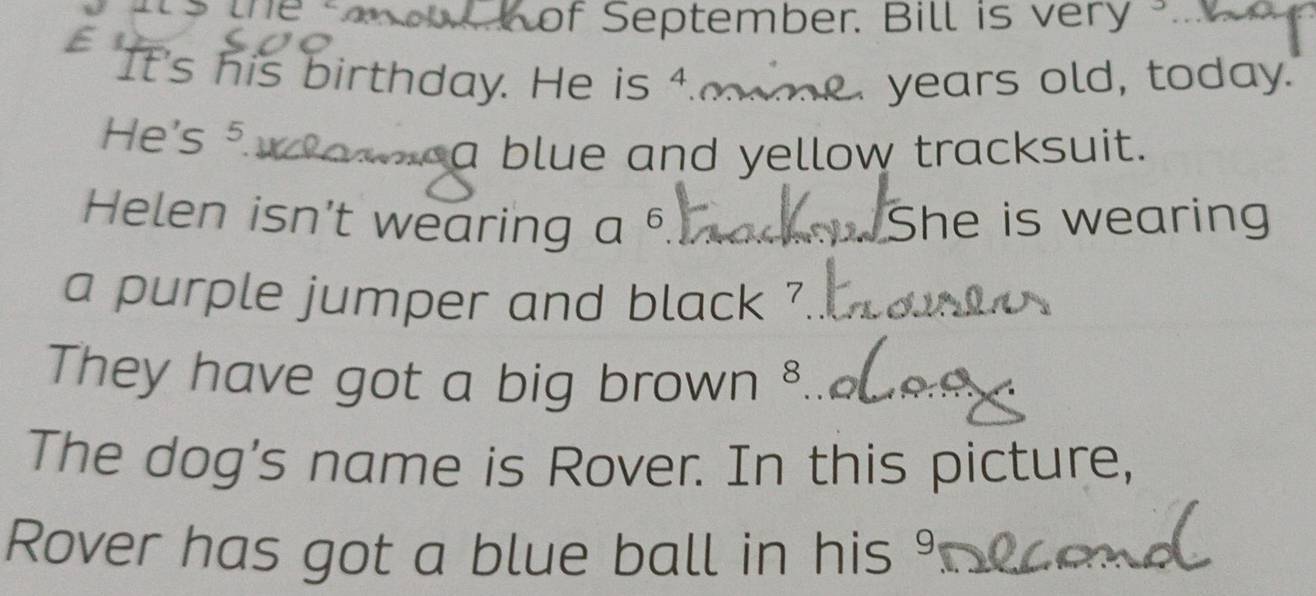 It's the 2 mouth of September. Bill is very 3 hap
It's his birthday. He is 4 nine years old, today.
He's 5 wearing a blue and yellow tracksuit.
Helen isn't wearing a 6 She is wearing
a purple jumper and black 7 trousers
They have got a big brown 8 dog.
The dog's name is Rover. In this picture,
Rover has got a blue ball in his 9 second